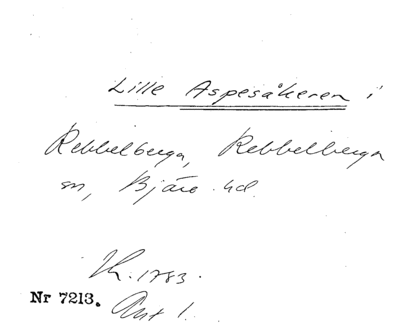 Lille Aspesåkeren i
Rebbelberga, Rebbelberga
sn, Bjäre hd.
Lh. 1783.
Nr 7213. Akt 1.